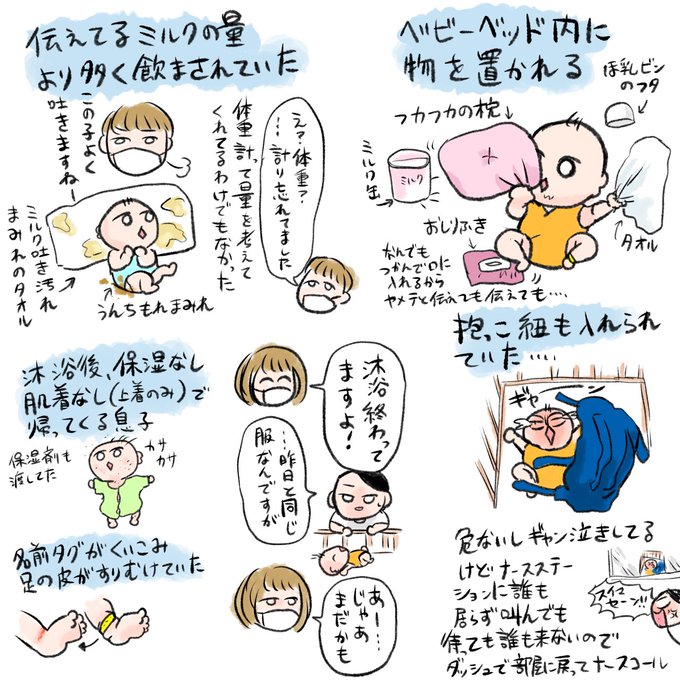 伝えてるミルクの量
より多く飲まされていた
この子よく
吐きますねー
ミルク吐き汚れ
まみれのタオル
うんちもれまみれ
えっ?体重?
…計り忘れてました
体重計って量を考えて
くれてるわけでもなかった
ベビーベッド内に
物を置かれる
ほ乳ビン
のフタ
フカフカの枕
ミルク缶
ミルク
タオル
おしりふき
なんでも
つかんで口に
入れるから
ヤメテと伝えても伝えても…
抱っこ紐も入れられ
ていた…
ギャーン
危ないしギャン泣きしてる
けどナースステー
ションに誰も
居らず叫んでも
待っても誰も来ないので
ダッシュで部屋に戻ってナースコール
スイマ
セーン!!
沐浴後、保湿なし
肌着なし(上着のみ)で
帰ってくる息子
保湿剤も
渡してた
カサ
カサ
沐浴終わって
ますよ!
…昨日と同じ
服なんですが
あー…
じゃあ
まだかも
名前タグがくいこみ
足の皮がすりむけていた